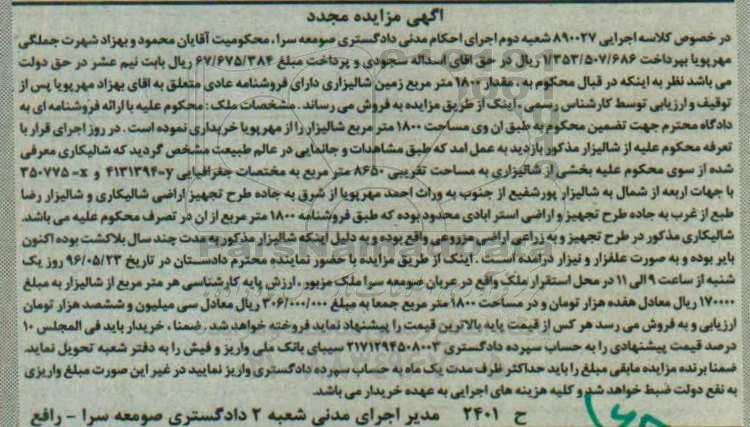 آگهی مزایده مجدد
در خصوص کلاسه اجرایی ۸۹۰۰۲۷ شعبه دوم اجرای احکام مدنی دادگستری صومعه سرا ، محکومیت آقایان محمود و بهزاد شهرت جملگی
مهرپویا بپرداخت ۱/۳۵۳/۵۰۷/۶۸۶ ریال در حق اقای اسداله سجودی و پرداخت مبلغ ۶۷/۶۷۵/۳۸۴ ریال بابت نیم عشر در حق دولت
می باشد نظر به اینکه در قبال محکوم به ، مقدار ۱۸۰۰ متر مربع زمین شالیزاری دارای فروشنامه عادی متعلق به اقای بهزاد مهرپویا پس از
توقیف و ارزیابی توسط کارشناس رسمی ، اینک از طریق مزایده به فروش می رساند . مشخصات ملک : محکوم علیه با ارائه فروشنامه ای به
دادگاه محترم جهت تضمین محکوم به طبق ان وی مساحت ۱۸۰۰ متر مربع شالیزار را از مهرپویا خریداری نموده است . در روز اجرای قرار با
تعرفه محکوم علیه از شالیزار مذکور بازدید به عمل امد که طبق مشاهدات و جانمایی در عالم طبیعت مشخص گردید که شالیکاری معرفی
شده از سوی محکوم علیه بخشی از شالیزاری به مساحت تقریبی ۸۶۵۰ متر مربع به مختصات جغرافیایی y-۴۱۳۱۳۹۴ و x-۳۵۰۷۷۵
با جهات اربعه از شمال به شالیزار پورشفیع از جنوب به وراث احمد مهرپویا از شرق به جاده طرح تجهیز اراضی شالیکاری و شالیزار رضا
طبع از غرب به جاده طرح تجهیز و اراضی استر ابادی محدود بوده که طبق فروشنامه ۱۸۰۰ متر مربع از ان در تصرف محکوم علیه می باشد.
شالیکاری مذکور در طرح تجهیز و به زراعی اراضی مزروعی واقع بوده و به دلیل اینکه شالیزار مذکور به مدت چند سال بلاکشت بوده اکنون
بایر بوده و به صورت علفزار و نیزار درآمده است . اینک از طریق مزایده با حضور نماینده محترم دادستان در تاریخ ۹۶/۰۵/۲۳ روز یک
شنبه از ساعت ۹ الی ۱۱ در محل استقرار ملک واقع در عربان صومعه سرا ملک مزبور ، ارزش پایه کارشناسی هر متر مربع از شالیزار به مبلغ
۱۷۰۰۰۰ ریال معادل هفده هزار تومان و در مساحت ۱۸۰۰ متر مربع جمعا به مبلغ ۳۰۶/۰۰۰/۰۰۰ ریال معادل سی میلیون و ششصد هزار تومان
ارزیابی و به فروش می رسد هر کس از قیمت پایه بالاترین قیمت را پیشنهاد نماید فروخته خواهد شد . ضمنا ، خریدار باید فی المجلس ۱۰
درصد قیمت پیشنهادی را به حساب سپرده دادگستری ۲۱۷۱۲۹۴۵۰۸۰۰۳ سیبای بانک ملی واریز و فیش را به دفتر شعبه تحویل نماید.
ضمنا برنده مزایده مابقی مبلغ را باید حداکثر ظرف مدت یک ماه به حساب سپرده دادگستری واریز نمایید در غیر این صورت مبلغ واریزی
به نفع دولت ضبط خواهد شد و کلیه هزینه های اجرایی به عهده خریدار می باشد.
ح ۲۴۰۱ مدیر اجرای مدنی شعبه ۲ دادگستری صومعه سرا - رافع